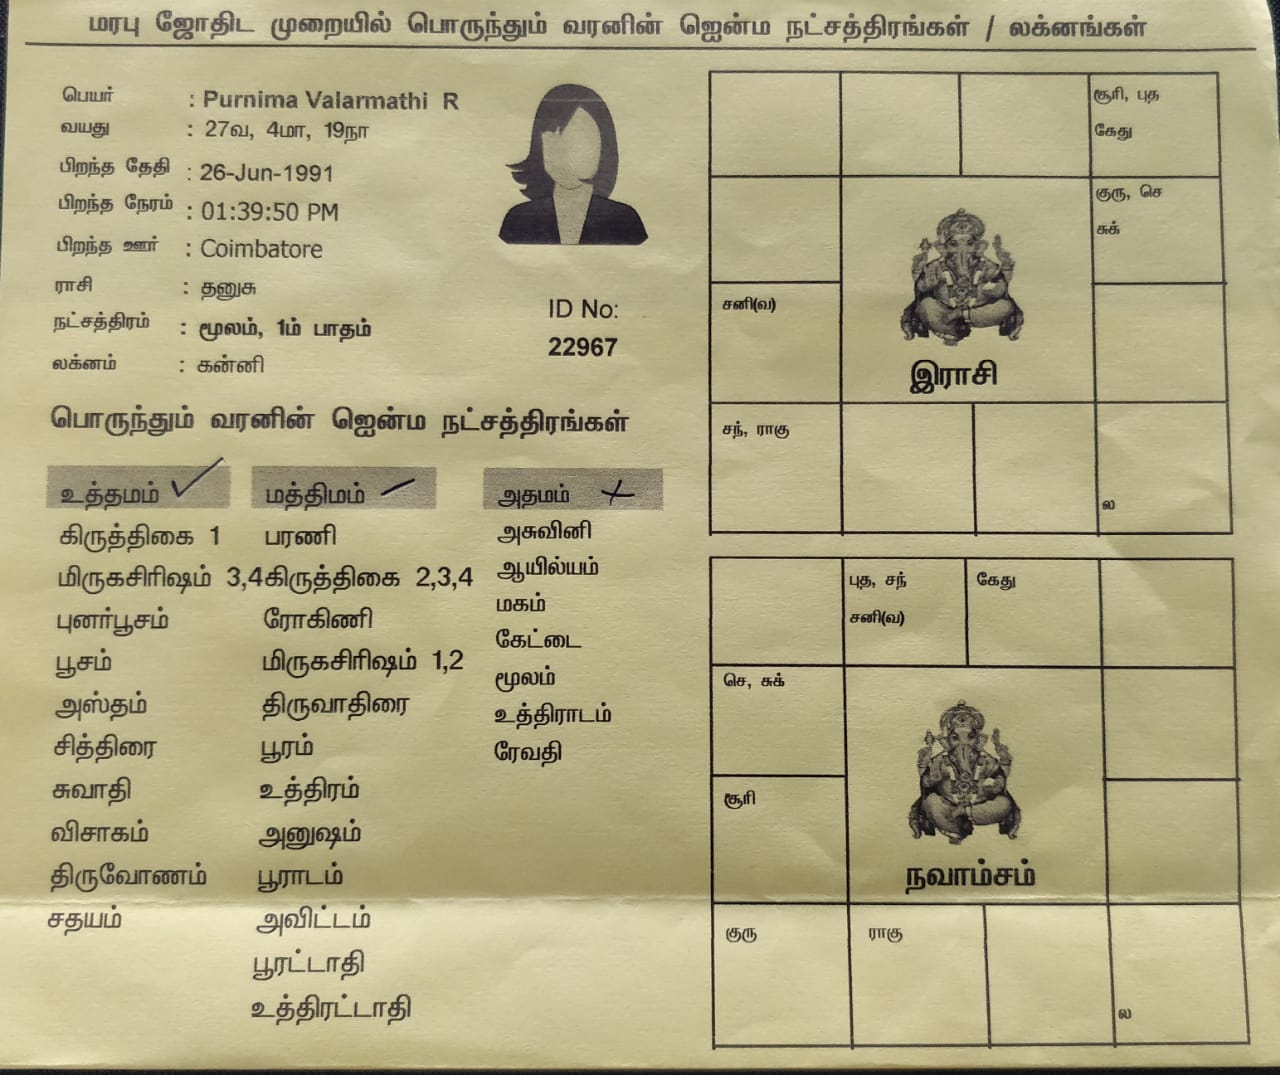 மரபு ஜோதிட முறையில் பொருந்தும் வரனின் ஜென்ம நட்சத்திரங்கள் / லக்னங்கள்
பெயர் : Purnima Valarmathi R
வயது : 27வ, 4மா, 19நா
பிறந்த தேதி : 26-Jun-1991
பிறந்த நேரம் : 01:39:50 PM
பிறந்த ஊர் : Coimbatore
ராசி : தனுசு
நட்சத்திரம் : மூலம், 1ம் பாதம்
லக்னம் : கன்னி
ID No:
22967
பொருந்தும் வரனின் ஜென்ம நட்சத்திரங்கள்
உத்தமம் ✓
கிருத்திகை 1
மிருகசிரிஷம் 3,4
புனர்பூசம்
பூசம்
அஸ்தம்
சித்திரை
சுவாதி
விசாகம்
திருவோணம்
சதயம்
மத்திமம் –
பரணி
கிருத்திகை 2,3,4
ரோகிணி
மிருகசிரிஷம் 1,2
திருவாதிரை
பூரம்
உத்திரம்
அனுஷம்
பூராடம்
அவிட்டம்
பூரட்டாதி
உத்திரட்டாதி
அதமம் +
அசுவினி
ஆயில்யம்
மகம்
கேட்டை
மூலம்
உத்திராடம்
ரேவதி
சூரி, புத
கேது
குரு, செ
சுக்
சனி(வ)
இராசி
சந், ராகு
ல
புத, சந்
சனி(வ)
கேது
செ, சுக்
சூரி
நவாம்சம்
குரு
ராகு
ல